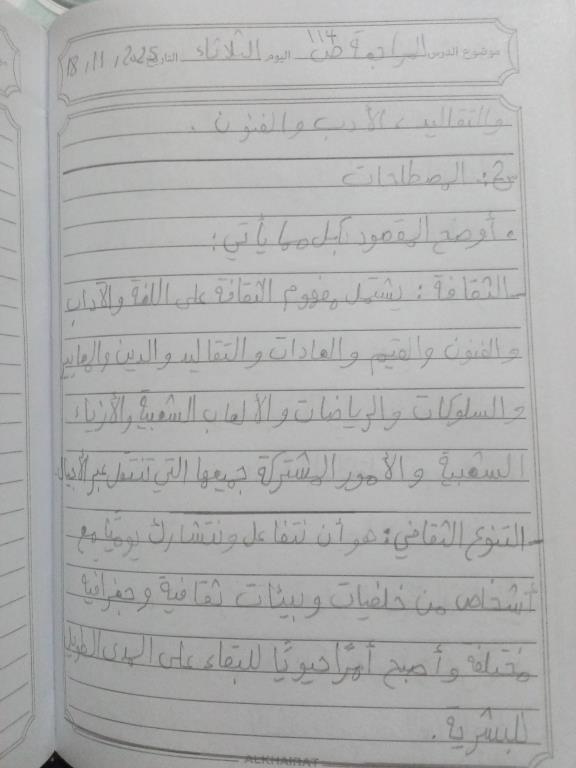 موضوع الدرس المراجعة ص ١١٤ اليوم الثلاثاء التاريخ 18, 11, 2025
والتقاليد، الأدب والفنون.
س2: المصطلحات
• أوضح المقصود بكل مما يأتي:
- الثقافة: يشتمل مفهوم الثقافة على اللغة والآداب
والفنون والقيم والعادات والتقاليد والدين والمعايير
والسلوكات والرياضات والألعاب الشعبية والأزياء
الشعبية والأمور المشتركة جميعها التي تنتقل عبر الأجيال
- التنوع الثقافي: هو أن نتفاعل ونتشارك يوميًا مع
أشخاص من خلفيات وبيئات ثقافية وجغرافية
مختلفة وأصبح أمرًا حيويًا للبقاء على المدى الطويل
للبشرية.
ALKHAIRAT